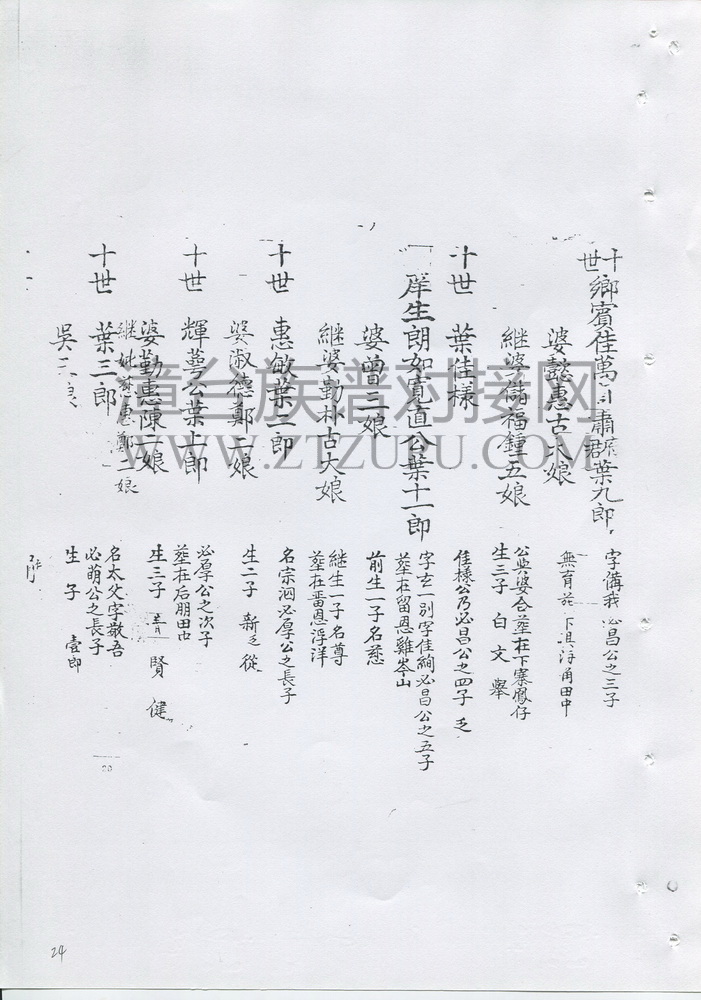 十世
鄉賓佳萬
肅郡葉九郎
字備我 必昌公之三子
婆懿惠古大娘
無育 下淇海角田中
繼婆儲福鍾五娘
公與婆合塟在下寨鳳仔
生三子 白 文 舉
十世
葉佳樣
佳樣公乃必昌公之四子 乏
庠生朗如寬直公葉十一郎
字玄一別字佳絢必昌公之五子
塟在留恩雞岺山
婆曾三娘
前生一子名慈
繼婆勤朴古大娘
継生一子名尊
塟在畨恩浮洋
十世
惠敏葉二郎
名宗泗必厚公之長子
婆淑德鄭二娘
生二子 新乏 從
十世
輝蕚公葉十郎
必厚公之次子
塟在后朋田中
婆勤惠陳一娘
生三子 賢 健
繼 惠鄭二娘
十世
葉三郎
名太父字敬吾
必萌公之長子
吳 娘
生 子 壹郎
20
24
章台族谱对接网
WWW.ZTZUPU.COM